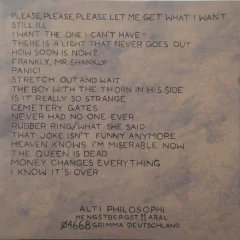 PLEASE, PLEASE, PLEASE LET ME GET WHAT I WANT
STILL ILL
I WANT THE ONE I CAN'T HAVE
THERE IS A LIGHT THAT NEVER GOES OUT
HOW SOON IS NOW?
FRANKLY, MR. SHANKLY
PANIC!
STRETCH OUT AND WAIT
THE BOY WITH THE THORN IN HIS SIDE
IS IT REALLY SO STRANGE
CEMETERY GATES
NEVER HAD NO ONE EVER
RUBBER RING/WHAT SHE SAID
THAT JOKE ISN'T FUNNY ANYMORE
HEAVEN KNOWS I'M MISERABLE NOW
THE QUEEN IS DEAD
MONEY CHANGES EVERYTHING
I KNOW IT'S OVER
ALTI PHILOSOPHI
HENGSTBERGST 11 ARAL
04668 GRIMMA DEUTSCHLAND